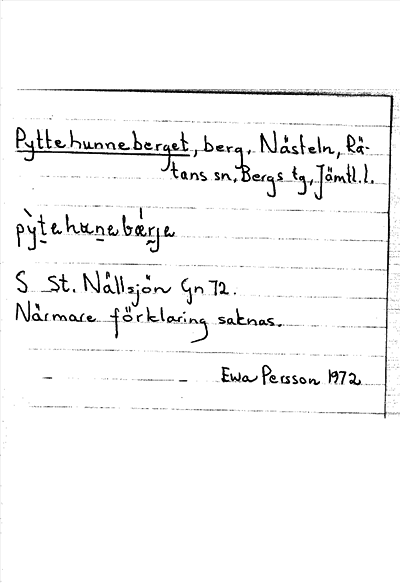 Pyttehunneberget, berg. Nästeln, Rä-
tans sn, Bergs tg, Jämtl.l.
pỳt̲eha̲n̲ebǽr̲je
S St. Nällsjön Gn 72.
Närmare förklaring saknas.
Ewa Persson 1972